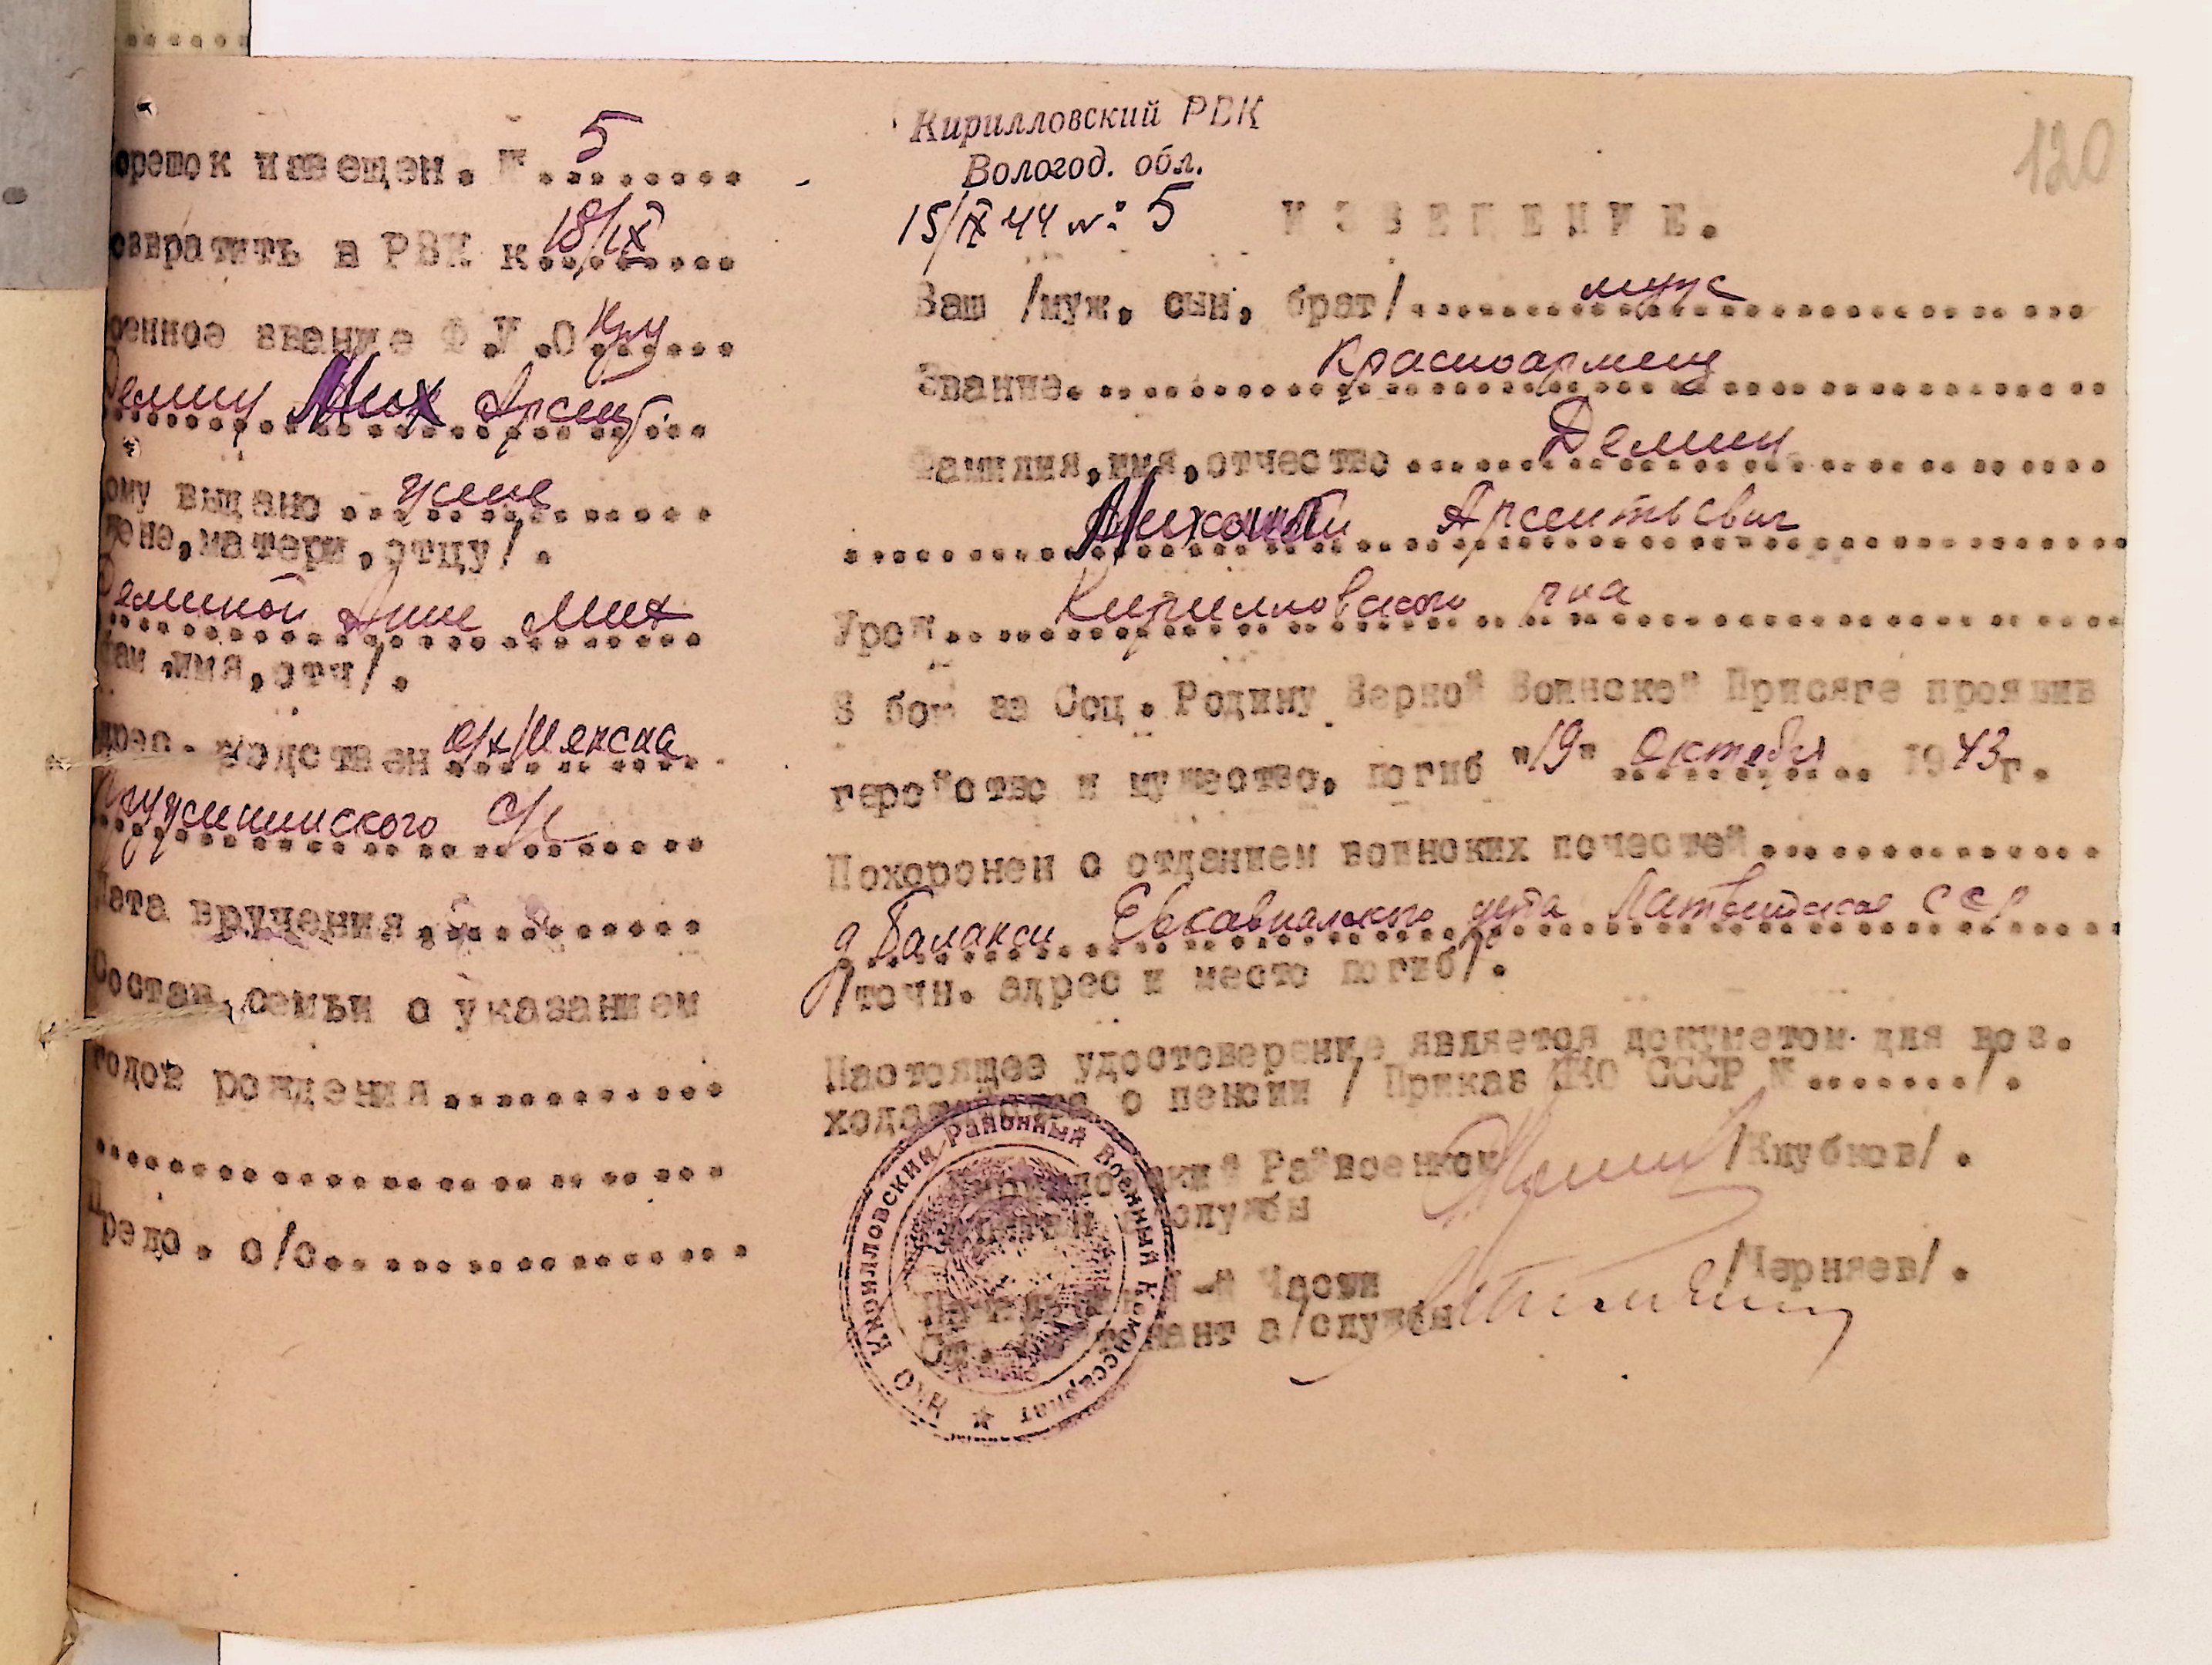 орешок извещен. № 5
озвратить в РВК к 18/IX
оенное звание Ф.И.О Кр/
Демин Мих Арсент.
ому выдано жене
жене, матери, отцу/.
Деминой Анне Мих
фам. имя, отч/.
дрес. родствен
с/с
Дата вручения
Состав семьи с указанием
годов рождения
Предс. с/с
120
Кирилловский РВК
Вологод. обл.
15/IX 44 №: 5
ИЗВЕЩЕНИЕ.
Ваш /муж, сын, брат/ муж
Звание. Красноармеец
Фамилия, имя, отчество Демин
Михаил Арсентьевич
Урож. Кирилловского р-на
В бою за Соц. Родину Верной Воинской Присяге проявив
геройство и мужество, погиб "19" Октября 1943г.
Похоронен с отданием воинских почестей
д Баланси уезда Латвийская ССР
/точн. адрес и место погиб/.
Настоящее удостоверение является документом для воз.
ходатайства о пенсии / Приказ НКО СССР № /.
Кирилловский Райвоенком /Клубков/.
Капитан а/службы
Начальник 1-й Части /Черняев/.
Ст. лейтенант а/службы
НКО Кирилловский Районный Военный Комиссариат